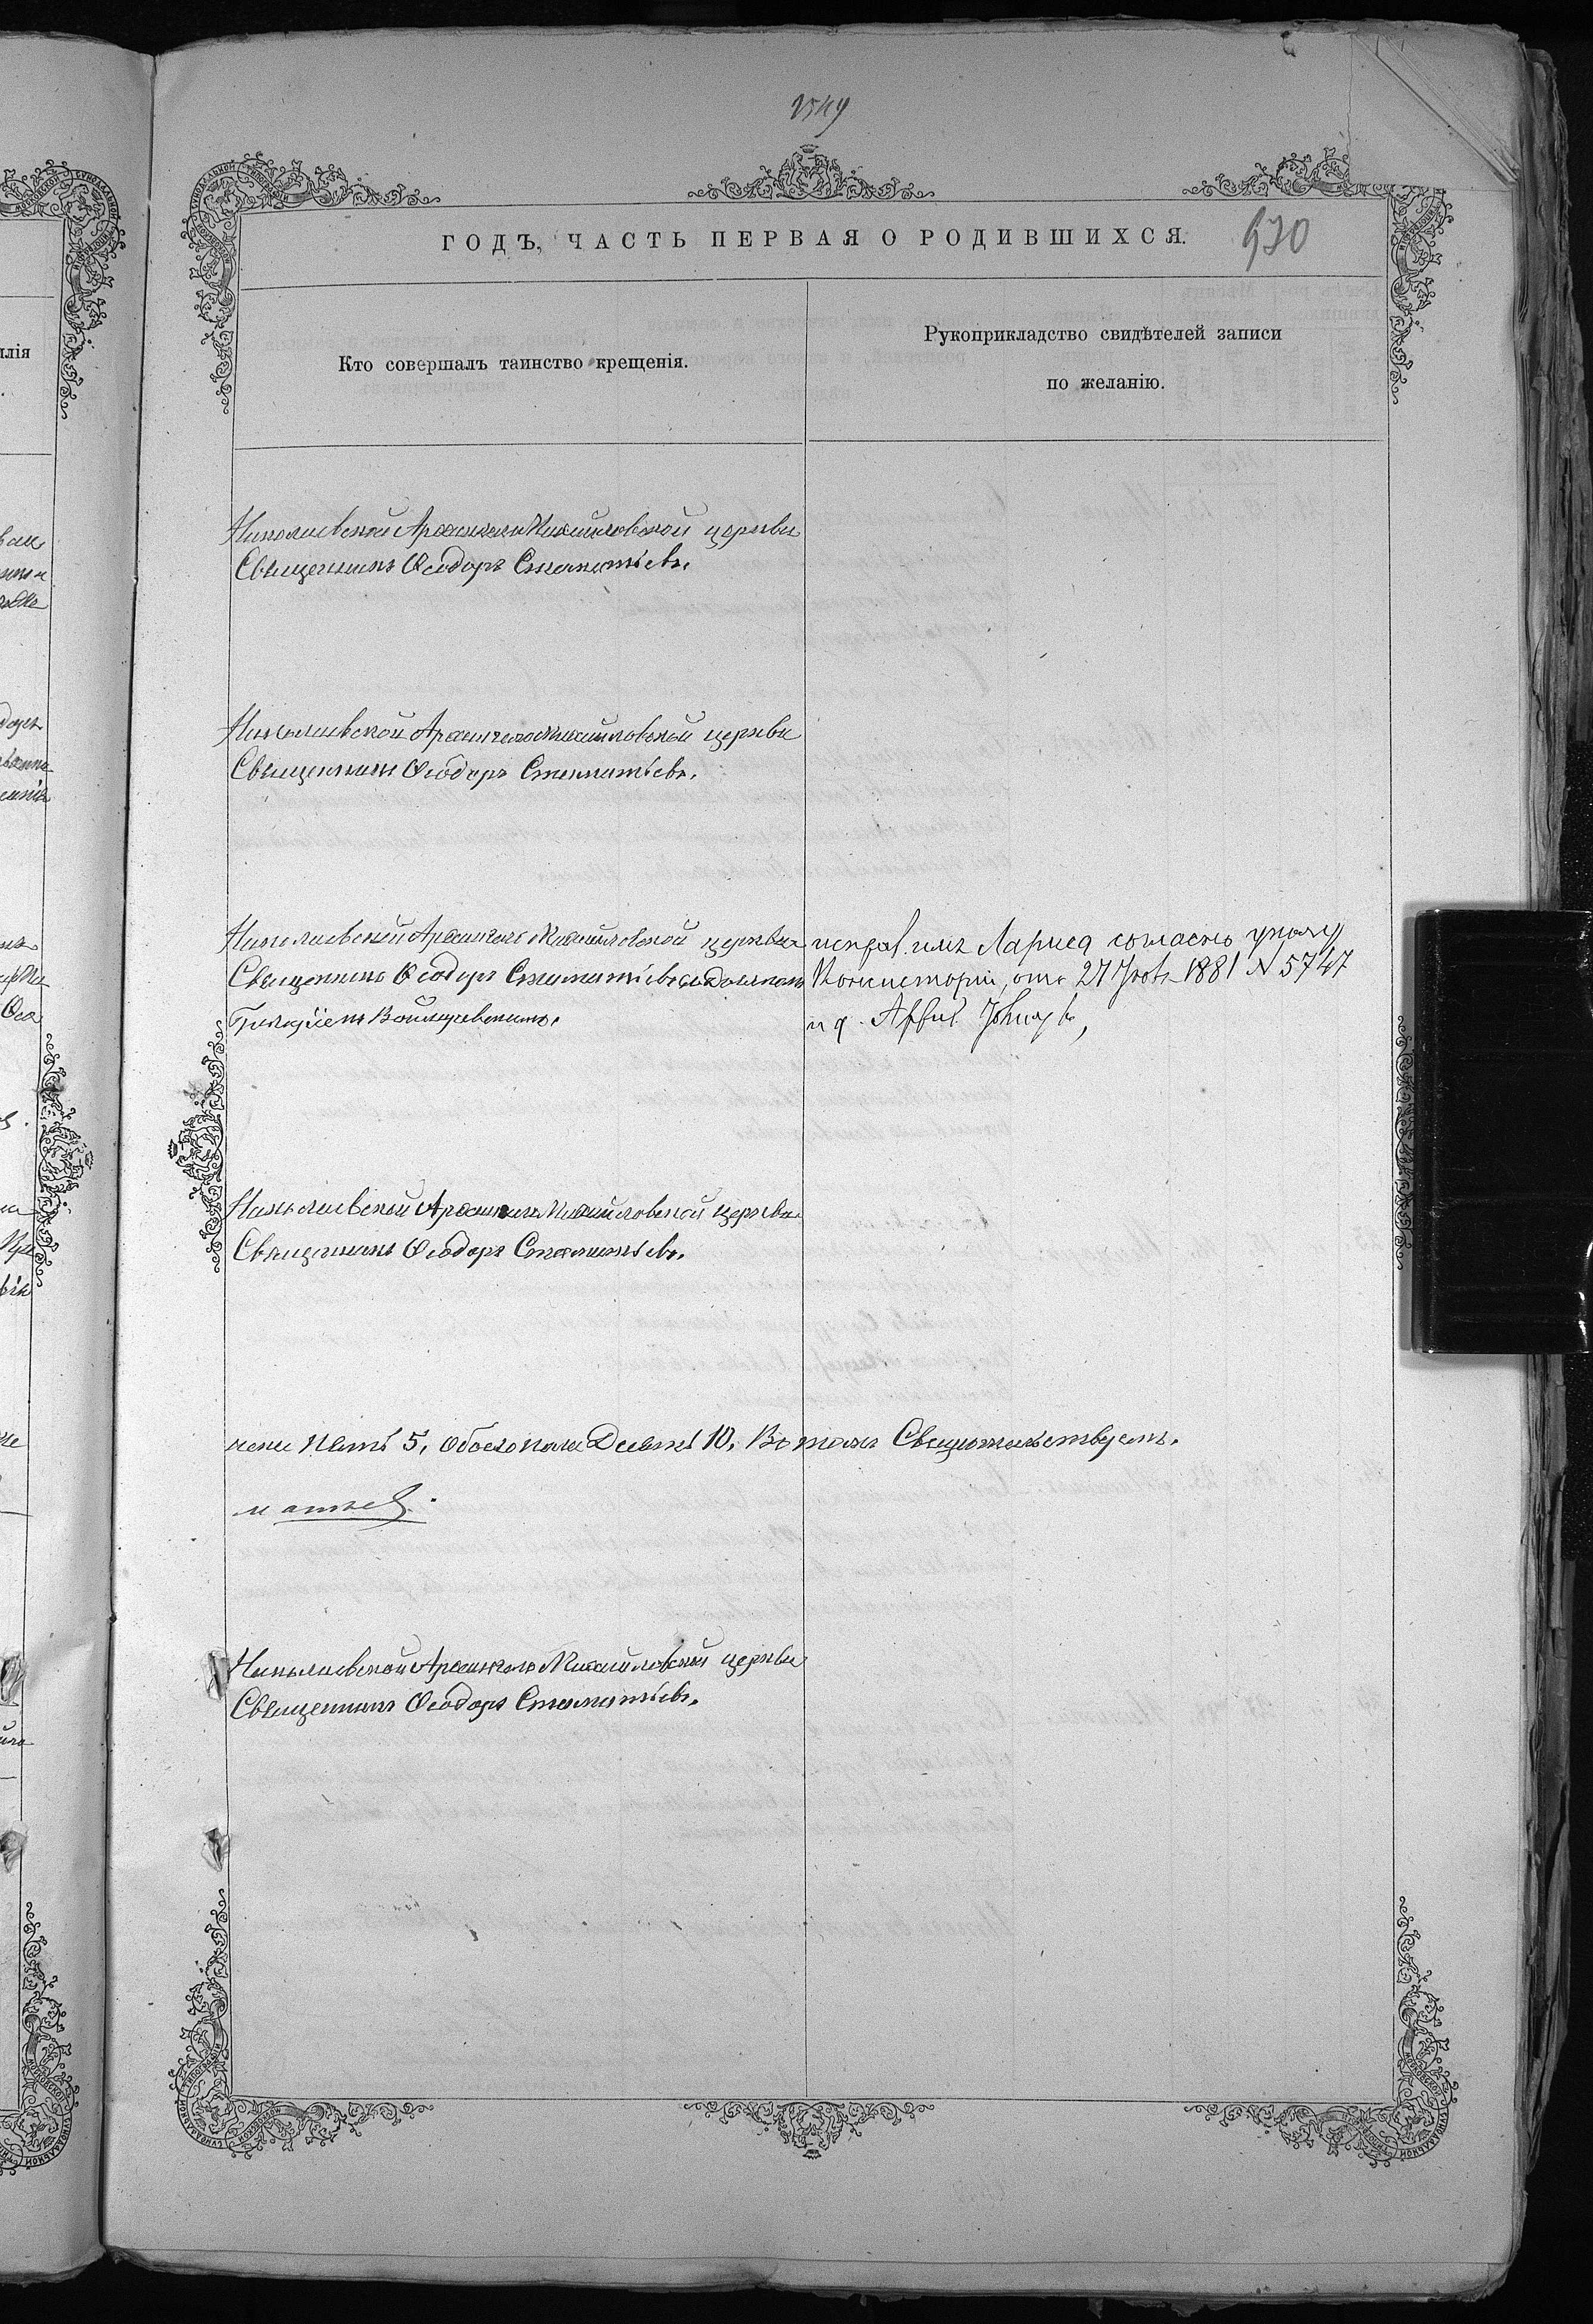 1549
ГОДЪ, ЧАСТЬ ПЕРВАЯ О РОДИВШИХСЯ.
930
Кто совершалъ таинство крещенія.
Рукоприкладство свидѣтелей записи
по желанію.
Николаевской Архангело Михайловской церкви
Священникъ Ѳеодоръ Стаматьевъ.
Николаевской Архангело Михайловской церкви
Священникъ Ѳеодоръ Стаматьевъ.
Николаевской Архангело Михайловской церкви
Священникъ Ѳеодоръ Стаматьевъ съ
исправ. имя Лариса согласно указу
Консисторіи, отъ 27 1881 N 5747
Николаевской Архангело Михайловской церкви
Священникъ Ѳеодоръ Стаматьевъ.
Пять 5, обоего пола Десять 10. Въ томъ Свидѣтельствуемъ.
матьев.
Николаевской Архангело Михайловской церкви
Священникъ Ѳеодоръ Стаматьевъ.